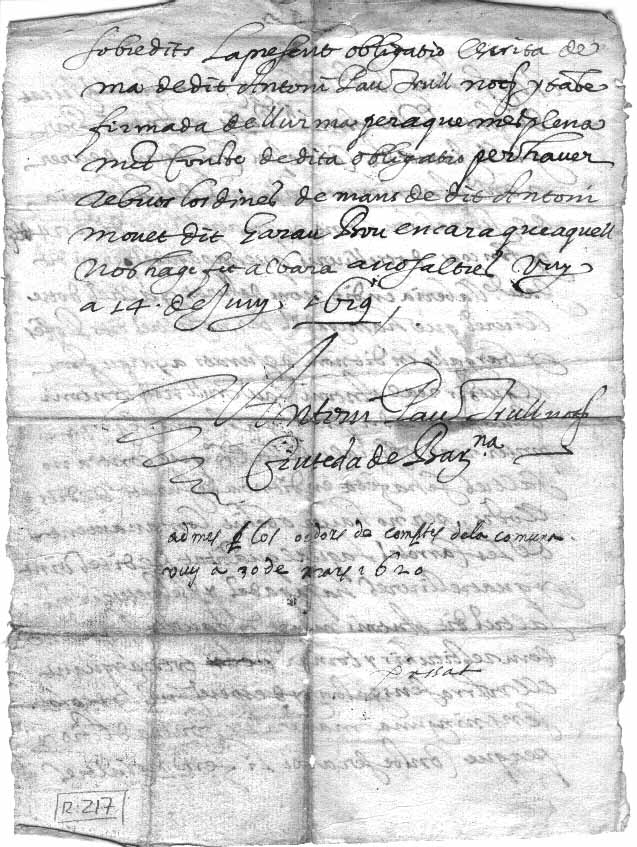 sobredits la present obligatio escrita de
ma de dit Antoni Pau Trull not y tabe
firmada de llur ma peraque mes plena
ment conste de dita obligatio per haver
rebuts los diners de mans de dit Antoni
Mouet dit Garau Brou encara que aquell
nos hage fet albara a nosaltres vuy
a 14. de Juny 1619
Antoni Pau Trull not
Ciuteda de Barna
admes los oedors de compts de la comuna
vuy a 30 de mars 1620
passat
R. 217